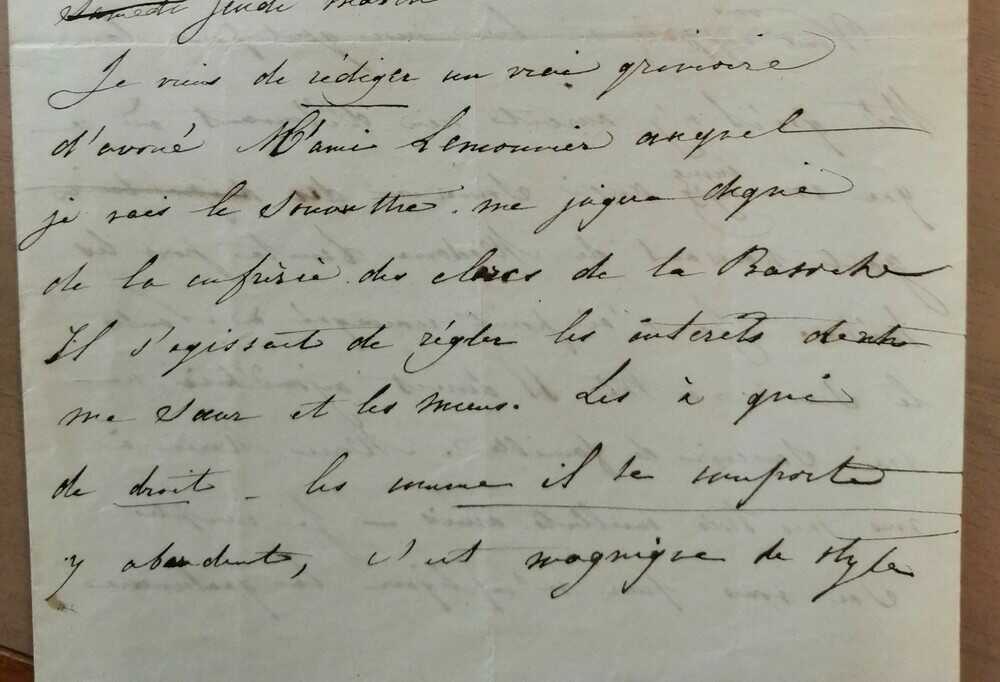 Samedi jeudi matin
Je viens de rédiger un vrai grimoire
d'avoué M. l'ami Lemonnier auquel
je vais le soumettre. me jugera digne
de la confrérie des clercs de la Basoche
Il s'agissait de régler les intérêts de
ma sœur et les miens. Les à qui
de droit _ les comme il se comporte
y abondent, c'est magnifique de style